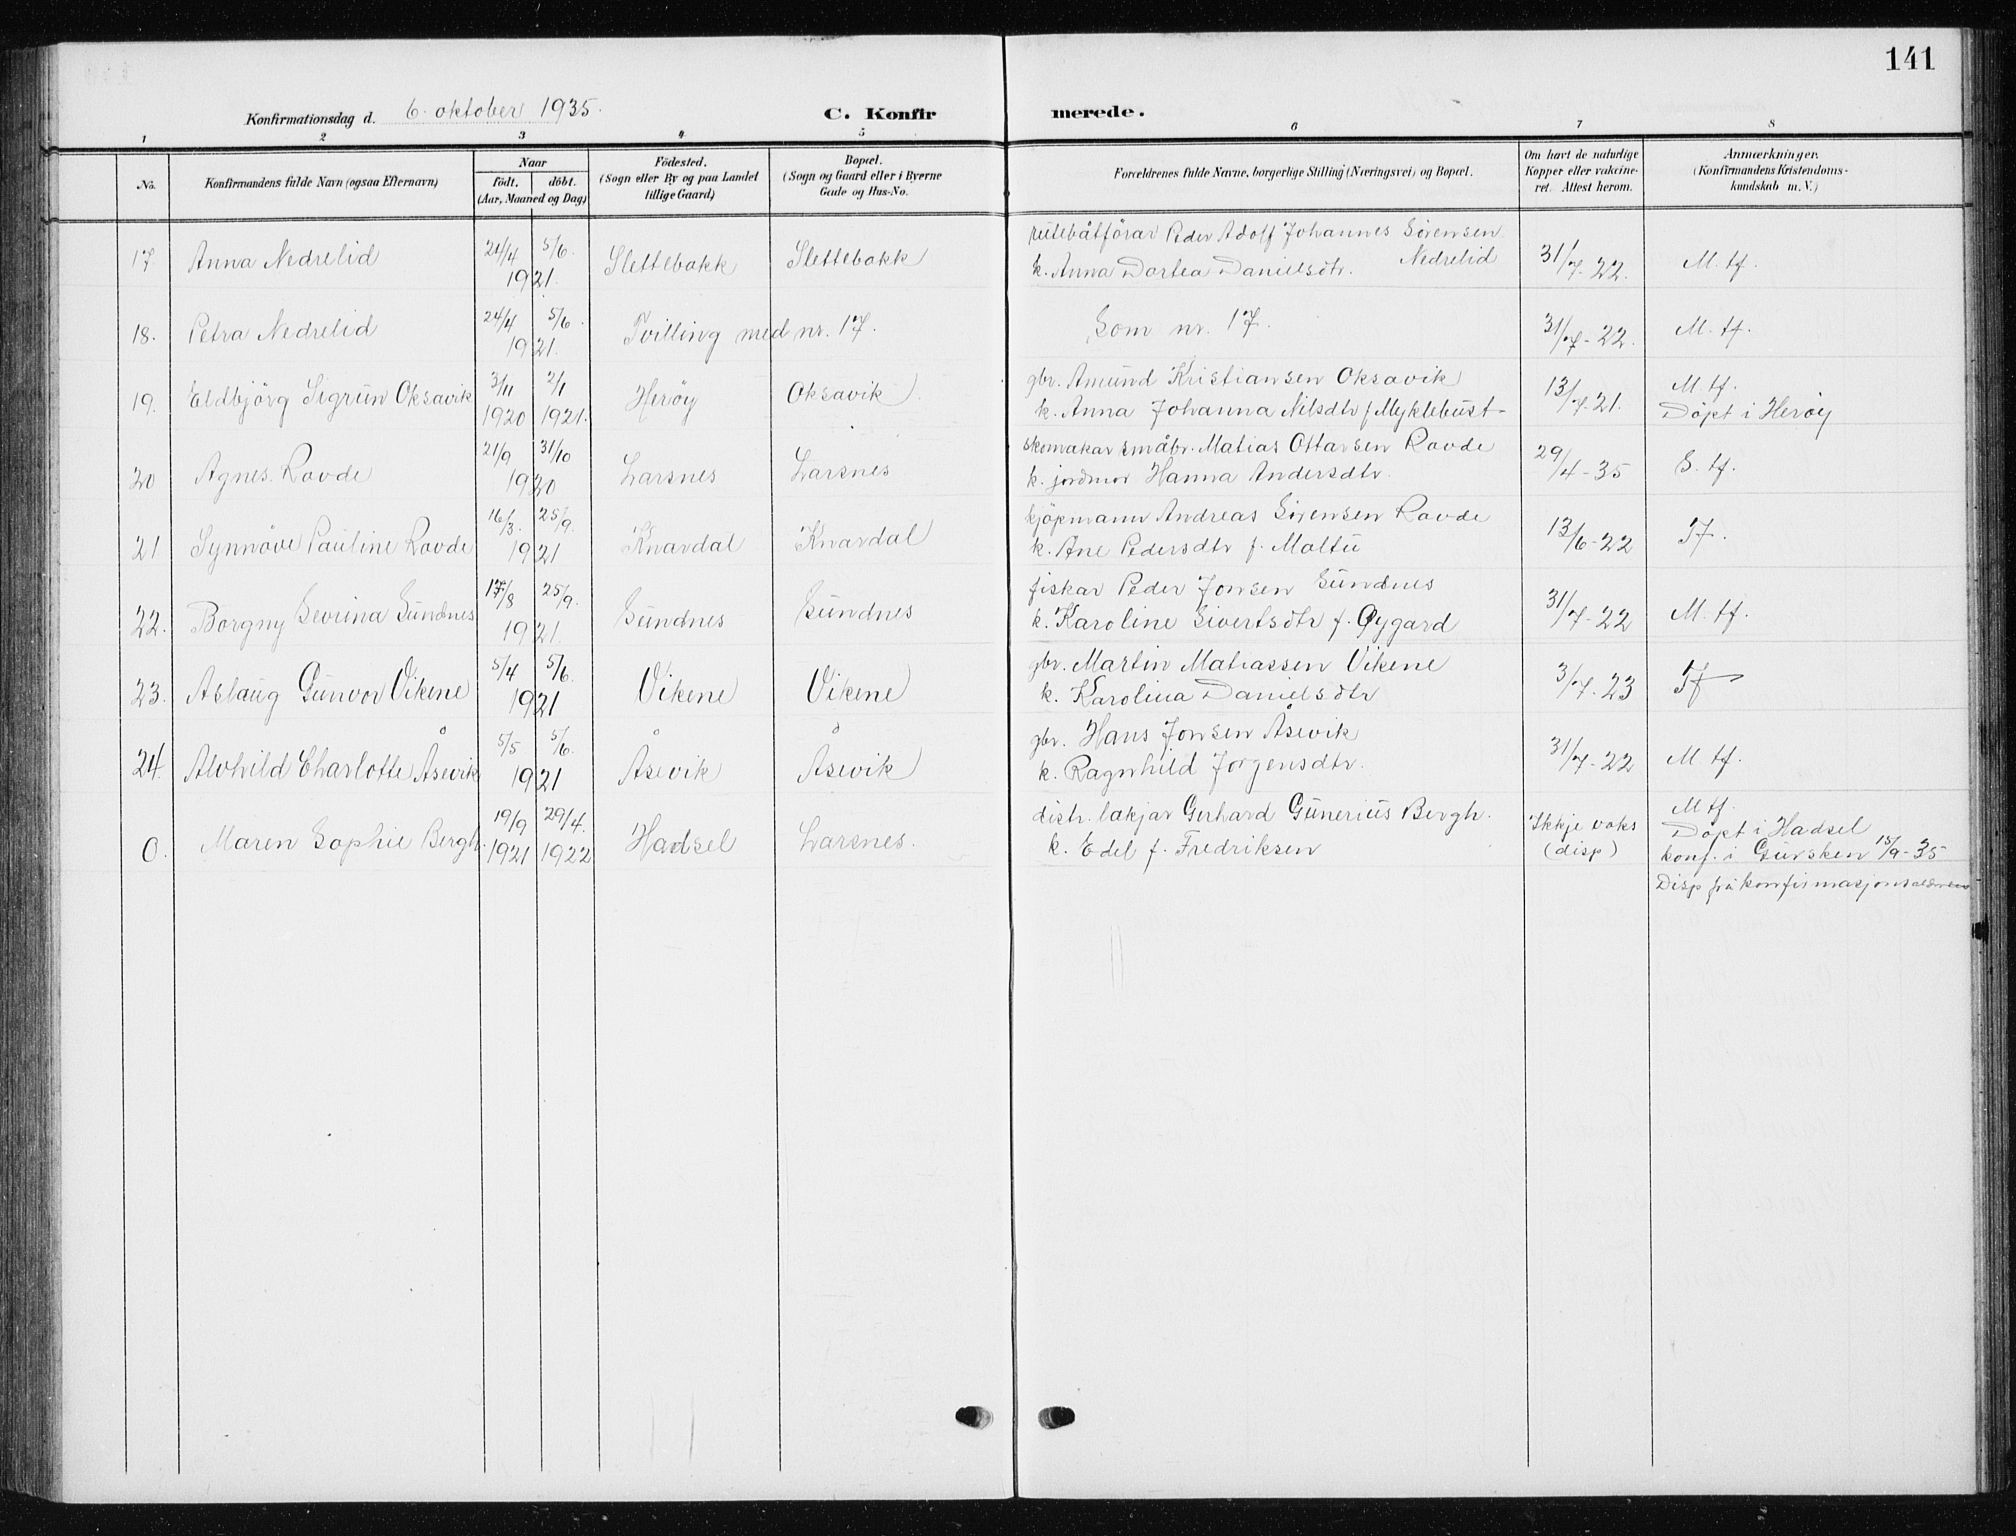 141
Konfirmationsdag d. 6. oktober 1935. C. Konfirmerede.
1 2 3 4 5 6 7 8
No. Konfirmandens fulde Navn (ogsaa Efternavn) Naar födt. döbt. (Aar, Maaned og Dag) Födested. (Sogn eller By og paa Landet tillige Gaard) Bopæl. (Sogn og Gaard eller i Byerne Gade og Hus-No. Forældrenes fulde Navne, borgerlige Stilling (Næringsvei) og Bopæl. Om havt de naturlige Kopper eller vakcineret. Attest herom. Anmærkninger. (Konfirmandens Kristendomskundskab m. V.)
17 Anna Nedrelid 24/4 5/6. 1921. Slettebakk Slettebakk rutebåtförar Peder Adolf Johannes Sörensen Nedrelid
k. Anna Dortea Danielsdtr. 31/7-22. M. tf.
18. Petra Nedrelid 24/4 5/6. 1921. Tvilling med nr. 17. Som nr. 17. 31/7-22. M. tf.
19. Eldbjörg Sigrun Oksavik 3/11 1920 2/1 1921. Heröy Oksavik gbr. Amund Kristiansen Oksavik
k. Anna Johanna Nilsdtr f. Myklebust- 13/7-21. M. tf.
Döpt i Heröy
20 Agnes Rovde 21/9 31/10 1920 Larsnes Larsnes skomakar småbr. Matias Ottarsen Rovde
k. jordmor Hanna Andersdtr. 29/4-35 S. tf.
21 Synnöve Pauline Rovde 16/3. 25/9. 1921 Knardal Knardal kjöpmann Andreas Sörensen Rovde
k. Ane Pedersdtr f. Moltu 13/6-22 Tf.
22. Borgny Sevrina Sundnes 17/8 25/9. 1921. Sundnes Sundnes fiskar Peder Jonsen Sundnes
k. Karoline Sivertsdtr f. Öygard 31/7-22 M. tf.
23. Aslaug Gunvor Vikene 5/4 5/6. 1921 Vikene Vikene gbr. Martin Matiassen Vikene
k. Karolina Danielsdtr 3/7-23 Tf
24. Alvhild Charlotte Åsevik 5/5 5/6. 1921 Åsevik Åsevik gbr. Hans Jonsen Åsevik
k. Ragnhild Jorgensdtr. 31/7-22 M. tf.
0. Maren Sophie Bergh. 19/9 1921 29/4. 1922 Hadsel Larsnes. distr. lækjar Gerhard Gunerius Bergh.
k. Edel f. Fredriksen Ikkje vaks (disp) M tf.
Döpt i Hadsel
konf. i Gursken 15/9-35
Disp frå konfirmasjonsalderen